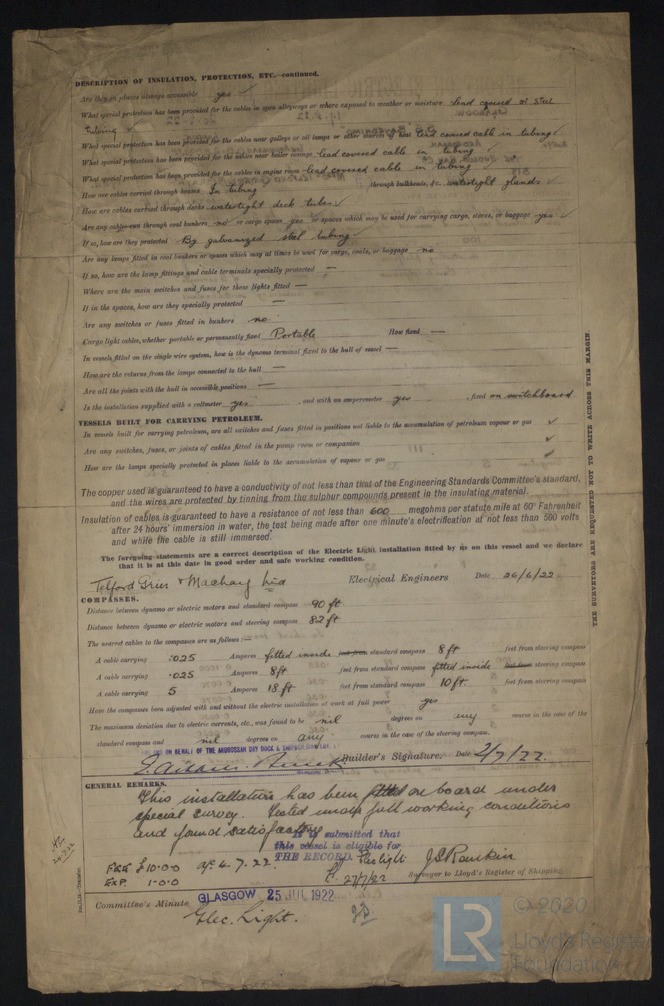 DESCRIPTION OF INSULATION, PROTECTION, ETC.—continued.
Are they in places always accessible yes ✓
What special protection has been provided for the cables in open alleyways or where exposed to weather or moisture lead covered or steel
tubing ✓
What special protection has been provided for the cables near galleys or oil lamps or other sources of heat lead covered cable in tubing ✓
What special protection has been provided for the cables near boiler casings lead covered cable in tubing ✓
What special protection has been provided for the cables in engine room lead covered cable in tubing
How are cables carried through beams In tubing through bulkheads, &c. watertight glands ✓
How are cables carried through decks watertight deck tubes ✓
Are any cables run through coal bunkers no or cargo spaces yes or spaces which may be used for carrying cargo, stores, or baggage yes ✓
If so, how are they protected By galvanized steel tubing ✓
Are any lamps fitted in coal bunkers or spaces which may at times be used for cargo, coals, or baggage no
If so, how are the lamp fittings and cable terminals specially protected —
Where are the main switches and fuses for these lights fitted —
If in the spaces, how are they specially protected —
Are any switches or fuses fitted in bunkers no
Cargo light cables, whether portable or permanently fixed Portable How fixed —
In vessels fitted on the single wire system, how is the dynamo terminal fixed to the hull of vessel —
How are the returns from the lamps connected to the hull —
Are all the joints with the hull in accessible positions —
Is the installation supplied with a voltmeter yes , and with an amperemeter yes , fixed on switchboard
VESSELS BUILT FOR CARRYING PETROLEUM.
In vessels built for carrying petroleum, are all switches and fuses fitted in positions not liable to the accumulation of petroleum vapour or gas ✓
Are any switches, fuses, or joints of cables fitted in the pump room or companion ✓
How are the lamps specially protected in places liable to the accumulation of vapour or gas ✓
The copper used is guaranteed to have a conductivity of not less than that of the Engineering Standards Committee's standard,
and the wires are protected by tinning from the sulphur compounds present in the insulating material.
Insulation of cables is guaranteed to have a resistance of not less than 600 megohms per statute mile at 60° Fahrenheit
after 24 hours' immersion in water, the test being made after one minute's electrification at not less than 500 volts
and while the cable is still immersed.
The foregoing statements are a correct description of the Electric Light installation fitted by us on this vessel and we declare
that it is at this date in good order and safe working condition.
Telford Grier & Mackay Ltd Electrical Engineers Date 26/6/22
COMPASSES.
Distance between dynamo or electric motors and standard compass 90 ft
Distance between dynamo or electric motors and steering compass 82 ft
The nearest cables to the compasses are as follows:—
A cable carrying .025 Amperes fitted inside feet from standard compass 8 ft feet from steering compass
A cable carrying .025 Amperes 8 ft feet from standard compass fitted inside feet from steering compass
A cable carrying 5 Amperes 18 ft feet from standard compass 10 ft feet from steering compass
Have the compasses been adjusted with and without the electric installation at work at full power yes
The maximum deviation due to electric currents, etc., was found to be nil degrees on any course in the case of the
standard compass and nil degrees on any course in the case of the steering compass.
ON BEHALF OF THE ARDROSSAN DRY DOCK &
Builder's Signature. Date 2/7/22.
GENERAL REMARKS.
This installation has been fitted on board under
special survey. Tested under full working conditions
and found satisfactory
It is submitted that
this vessel is eligible for
THE RECORD. Elec light J S Rankin
27/7/22 Surveyor to Lloyd's Register of Shipping.
FEE £10.0.0 4.7.22.
EXP. 1.0.0
Committee's Minute GLASGOW 25 JUL 1922
Elec. Light.
THE SURVEYORS ARE REQUESTED NOT TO WRITE ACROSS THIS MARGIN.
© 2020
LR Lloyd's Register
Foundation